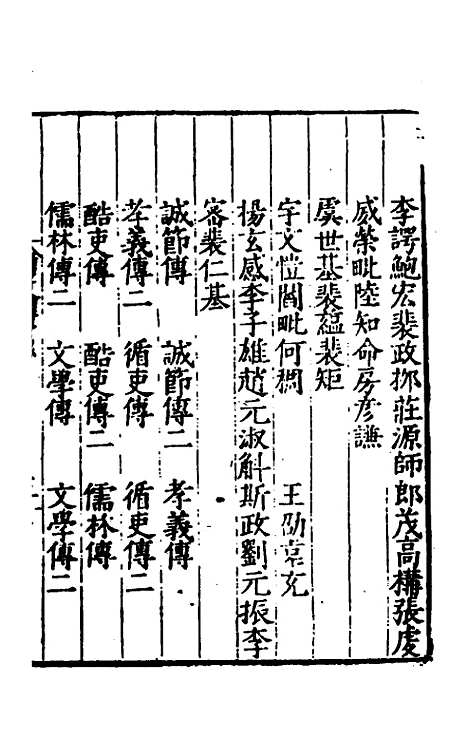 李諤鮑宏裴政柳莊源師郎茂高構張虔
威榮毗陸知命房彥謙
虞世基裴蘊裴矩
宇文愷閻毗何稠　王劭袁充
楊玄感李子雄趙元淑斛斯政劉元振李
密裴仁基
誠節傳　誠節傳二　孝義傳
孝義傳二　循吏傳　循吏傳二
酷吏傳　酷吏傳二　儒林傳
儒林傳二　文學傳　文學傳二